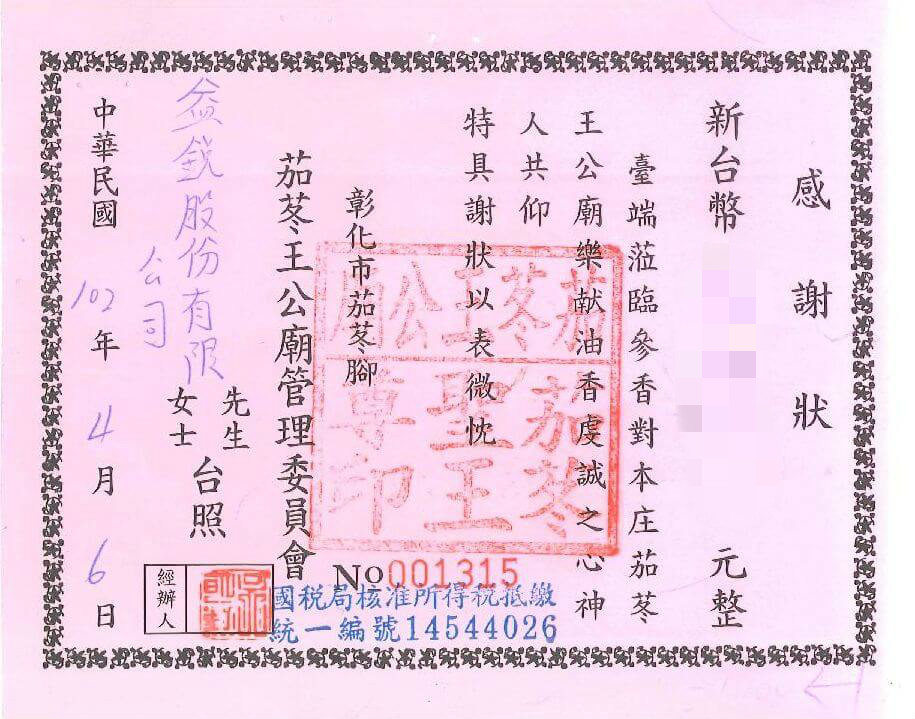 感謝狀
新台幣 元整
臺端蒞臨參香對本庄茄苳
王公廟樂献油香虔誠之心神
人共仰
特具謝狀以表微忱
彰化市茄苳腳
茄苳王公廟管理委員會
茄苳王公廟
茄苳
聖王
尊印
益銳股份有限
公司
先生
女士
台照
中華民國102年4月6日
經辦人
No 001315
國稅局核准所得稅抵繳
統一編號14544026